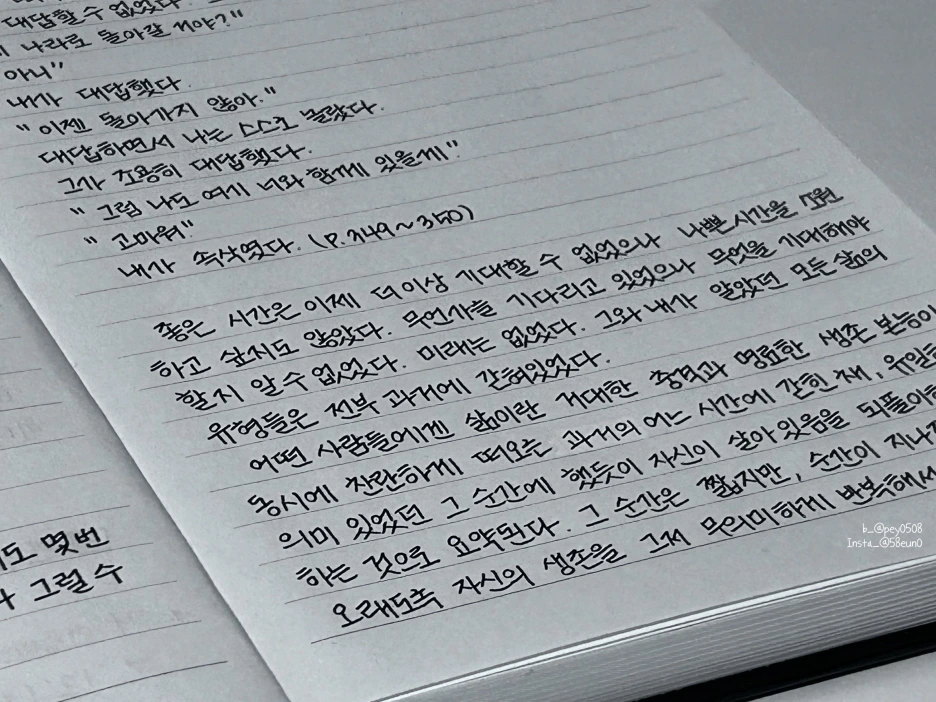 대답할 수 없었다.
나라로 돌아갈 거야?"
아니"
내가 대답했다.
"이젠 돌아가지 않아."
대답하면서 나는 스스로 놀랐다.
그가 조용히 대답했다.
"그럼 나도 여기 너와 함께 있을게"
"고마워"
내가 속삭였다. (P.349~350)
좋은 시간은 이제 더 이상 기대할 수 없었으나 나쁜 시간을
하고 싶지도 않았다. 무언가를 기다리고 있었으나 무엇을 기대해야
할지 알 수 없었다. 미래는 없었다. 그와 내가 알았던 모든 삶의
유형들은 전부 과거에 갇혀있었다.
어떤 사람들에겐 삶이란 거대한 충격과 명료한 생존 본능이
동시에 찬란하게 떠오르는 과거의 어느 시간에 갇힌 채, 유일하
의미 있었던 그 순간에 했듯이 자신이 살아 있음을 되풀이하
하는 것으로 요약된다. 그 순간은 짧지만, 순간이 지나
오래도록 자신의 생존을 그저 무의미하게 반복해서
도 몇번
그럴 수
b_@pey0508
Insta_@58eun0